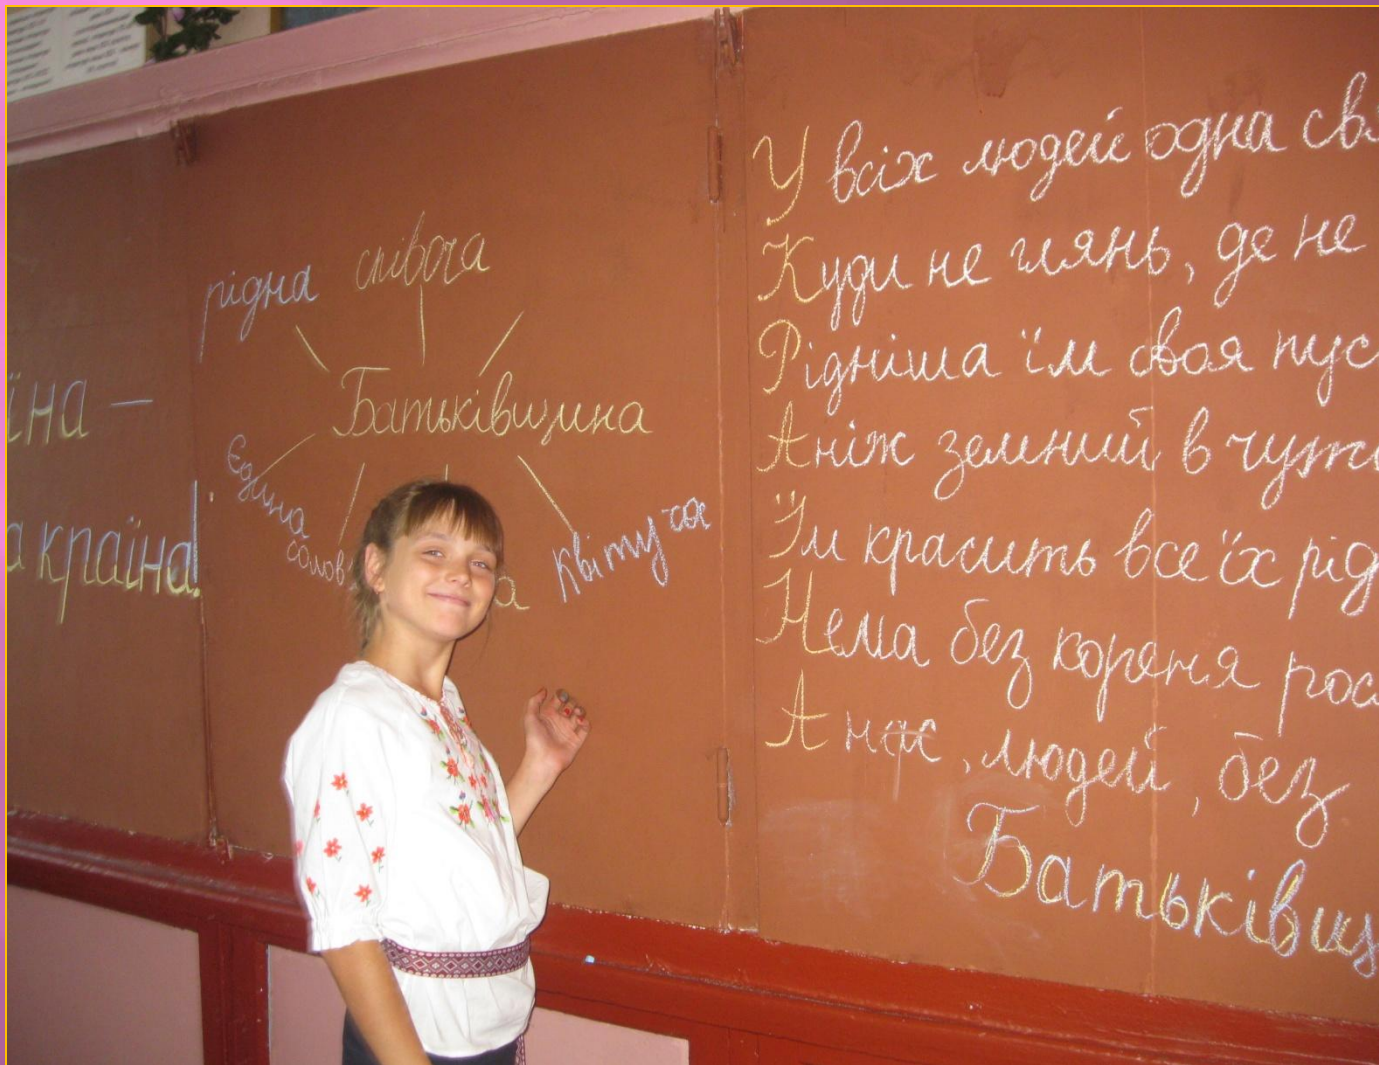 їна –
а країна!
рідна співоча
Батьківщина
Єдина
солов
а
квітуча
У всіх людей одна св
Куди не глянь, де не
Рідніша їм своя пус
Аніж земний в чуж
Їм красить все їх рід
Нема без кореня рос
А нас, людей, без
Батьківщ